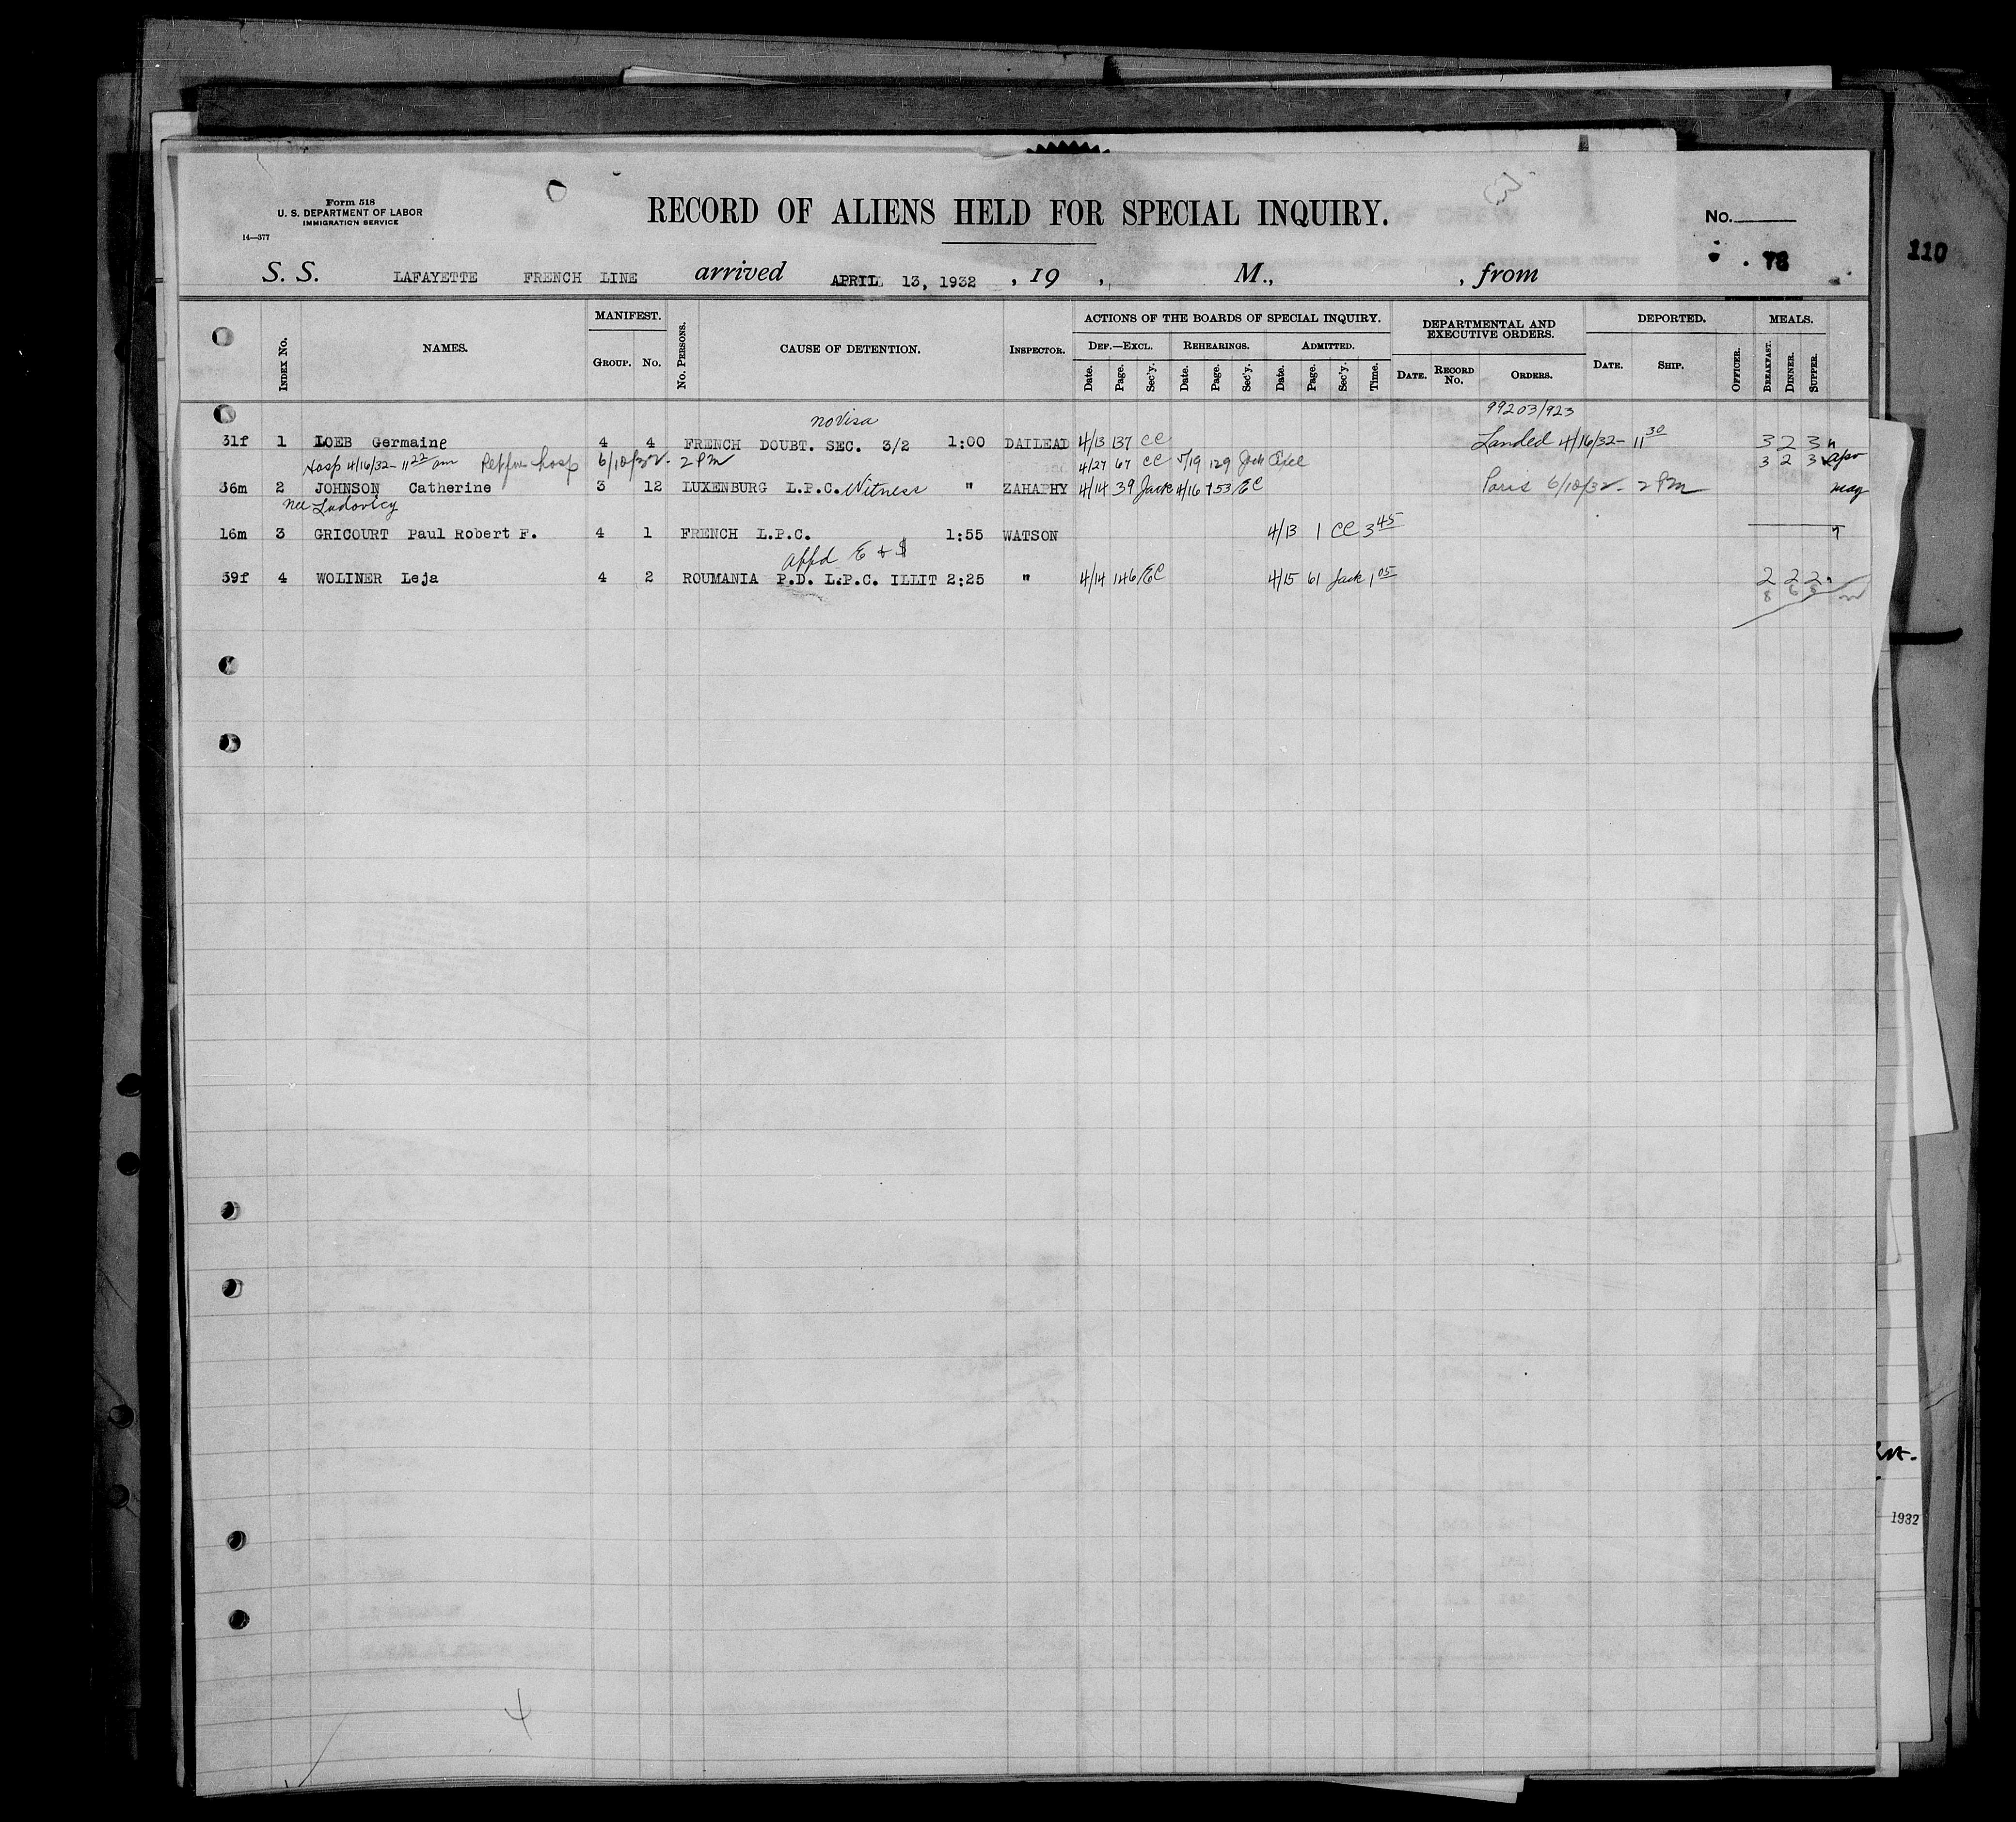 Form 518
U. S. DEPARTMENT OF LABOR
IMMIGRATION SERVICE
14—377
RECORD OF ALIENS HELD FOR SPECIAL INQUIRY.
No.
78
110
S. S. LAFAYETTE FRENCH LINE arrived APRIL 13, 1932 , 19 , M., , from
INDEX No. NAMES. MANIFEST. GROUP. No. No. PERSONS. CAUSE OF DETENTION. INSPECTOR. ACTIONS OF THE BOARDS OF SPECIAL INQUIRY. DEPARTMENTAL AND EXECUTIVE ORDERS. DEPORTED. MEALS.
DEF.—EXCL. REHEARINGS. ADMITTED.
Date. Page. Sec'y. Date. Page. Sec'y. Date. Page. Sec'y. Time. DATE. RECORD No. ORDERS. DATE. SHIP. OFFICER. BREAKFAST. DINNER. SUPPER.
no Visa 99203/923
31f 1 LOEB Germaine 4 4 FRENCH DOUBT. SEC. 3/2 1:00 DAILEAD 4/13 137 CC Landed 4/16/32- 11 30 3 2 3
Hosp 4/16/32- 11 22 am hosp 6/10/32- 2 PM 4/27 67 CC 5/19 129 Jack 3 2 3
36m 2 JOHNSON Catherine 3 12 LUXENBURG L.P.C. Witness " ZAHAPHY 4/14 39 Jack 4/16 153 EC Paris 6/10/32- 2 PM
nee Ludovicy
16m 3 GRICOURT Paul Robert F. 4 1 FRENCH L.P.C. 1:55 WATSON 4/13 1 CC 3 45
appd E + $
59f 4 WOLINER Leja 4 2 ROUMANIA P.D. L.P.C. ILLIT 2:25 " 4/14 146 EC 4/15 61 Jack 1 05 2 2 2
8 6 8
1932
4